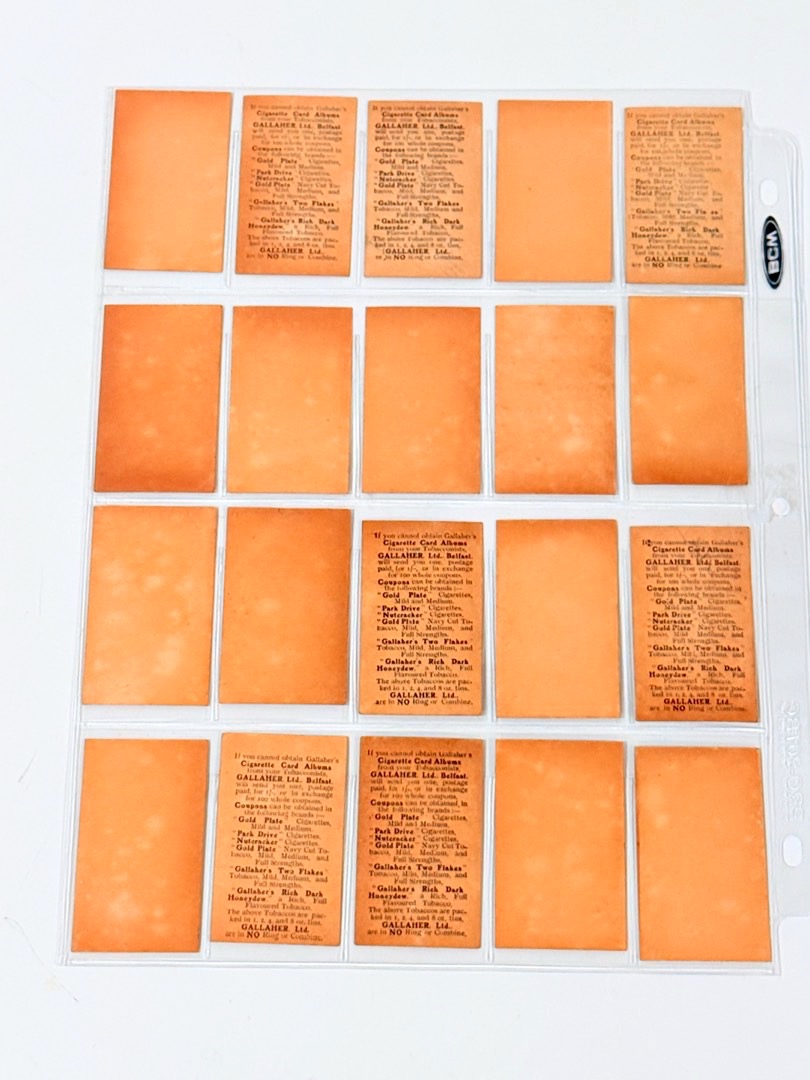 If you cannot obtain Gallaher's
Cigarette Card Albums
from your Tobacconists,
GALLAHER Ltd. Belfast.
will send you one, postage
paid, for 1/-, or in exchange
for 100 whole coupons.
Coupons can be obtained in
the following brands :—
"Gold Plate" Cigarettes,
Mild and Medium.
"Park Drive" Cigarettes.
"Nutcracker" Cigarettes.
"Gold Plate" Navy Cut To-
bacco, Mild, Medium, and
Full Strengths.
"Gallaher's Two Flakes"
Tobacco, Mild, Medium, and
Full Strengths.
"Gallaher's Rich Dark
Honeydew," a Rich, Full
Flavoured Tobacco.
The above Tobaccos are pac-
ked in 1, 2, 4, and 8 oz. tins.
GALLAHER Ltd.,
are in NO Ring or Combine.
If you cannot obtain Gallaher's
Cigarette Card Albums
from your Tobacconists,
GALLAHER Ltd. Belfast.
will send you one, postage
paid, for 1/-, or in exchange
for 100 whole coupons.
Coupons can be obtained in
the following brands :—
"Gold Plate" Cigarettes,
Mild and Medium.
"Park Drive" Cigarettes.
"Nutcracker" Cigarettes.
"Gold Plate" Navy Cut To-
bacco, Mild, Medium, and
Full Strengths.
"Gallaher's Two Flakes"
Tobacco, Mild, Medium, and
Full Strengths.
"Gallaher's Rich Dark
Honeydew," a Rich, Full
Flavoured Tobacco.
The above Tobaccos are pac-
ked in 1, 2, 4, and 8 oz. tins.
GALLAHER Ltd.,
NO Ring or Combine.
If you cannot obtain Gallaher's
Cigarette Card Albums
from your Tobacconists,
GALLAHER Ltd. Belfast.
will send you one, postage
paid, for 1/-, or in exchange
for 100 whole coupons.
Coupons can be obtained in
the following brands :—
"Gold Plate" Cigarettes,
Mild and Medium.
"Park Drive" Cigarettes.
"Nutcracker" Cigarettes
"Gold Plate" Navy Cut To-
bacco, Mild, Medium, and
Full Strengths.
"Gallaher's Two
Tobacco, Mild, Medium, and
Full Strengths.
"Gallaher's Rich Dark
Honeydew," a Rich, Full
Flavoured Tobacco.
The above Tobaccos are pac-
ked in 1, 2, 4, and 8 oz. tins.
GALLAHER Ltd.,
are in NO Ring or Combine.
BCM
If you cannot obtain Gallaher's
Cigarette Card Albums
from your Tobacconists,
GALLAHER Ltd. Belfast.
will send you one, postage
paid, for 1/-, or in exchange
for 100 whole coupons.
Coupons can be obtained in
the following brands :—
"Gold Plate" Cigarettes,
Mild and Medium.
"Park Drive" Cigarettes.
"Nutcracker" Cigarettes.
"Gold Plate" Navy Cut To-
bacco, Mild, Medium, and
Full Strengths.
"Gallaher's Two Flakes"
Tobacco, Mild, Medium, and
Full Strengths.
"Gallaher's Rich Dark
Honeydew," a Rich, Full
Flavoured Tobacco.
The above Tobaccos are pac-
ked in 1, 2, 4, and 8 oz. tins.
GALLAHER Ltd.,
are in NO Ring or Combine.
you cannot obtain Gallaher's
Cigarette Card Albums
from your
GALLAHER Ltd. Belfast.
will send you one, postage
paid, for 1/-, or in exchange
for 100 whole coupons.
Coupons can be obtained in
the following brands :—
"Gold Plate" Cigarettes,
Mild and Medium.
"Park Drive" Cigarettes.
"Nutcracker" Cigarettes.
"Gold Plate" Navy Cut To-
bacco, Mild, Medium, and
Full Strengths.
"Gallaher's Two Flakes"
Tobacco, Mild, Medium, and
Full Strengths.
"Gallaher's Rich Dark
Honeydew," a Rich, Full
Flavoured Tobacco.
The above Tobaccos are pac-
ked in 1, 2, 4, and 8 oz. tins.
GALLAHER Ltd.,
are in NO Ring or Combine.
If you cannot obtain Gallaher's
Cigarette Card Albums
from your Tobacconists,
GALLAHER Ltd. Belfast.
will send you one, postage
paid, for 1/-, or in exchange
for 100 whole coupons.
Coupons can be obtained in
the following brands :—
"Gold Plate" Cigarettes,
Mild and Medium.
"Park Drive" Cigarettes.
"Nutcracker" Cigarettes.
"Gold Plate" Navy Cut To-
bacco, Mild, Medium, and
Full Strengths.
"Gallaher's Two Flakes"
Tobacco, Mild, Medium, and
Full Strengths.
"Gallaher's Rich Dark
Honeydew," a Rich, Full
Flavoured Tobacco.
The above Tobaccos are pac-
ked in 1, 2, 4, and 8 oz. tins.
GALLAHER Ltd.,
are in NO Ring or Combine.
If you cannot obtain Gallaher's
Cigarette Card Albums
from your Tobacconists,
GALLAHER Ltd. Belfast.
will send you one, postage
paid, for 1/-, or in exchange
for 100 whole coupons.
Coupons can be obtained in
the following brands :—
"Gold Plate" Cigarettes,
Mild and Medium.
"Park Drive" Cigarettes.
"Nutcracker" Cigarettes.
"Gold Plate" Navy Cut To-
bacco, Mild, Medium, and
Full Strengths.
"Gallaher's Two Flakes"
Tobacco, Mild, Medium, and
Full Strengths.
"Gallaher's Rich Dark
Honeydew," a Rich, Full
Flavoured Tobacco.
The above Tobaccos are pac-
ked in 1, 2, 4, and 8 oz. tins.
GALLAHER Ltd.,
are in NO Ring or Combine.